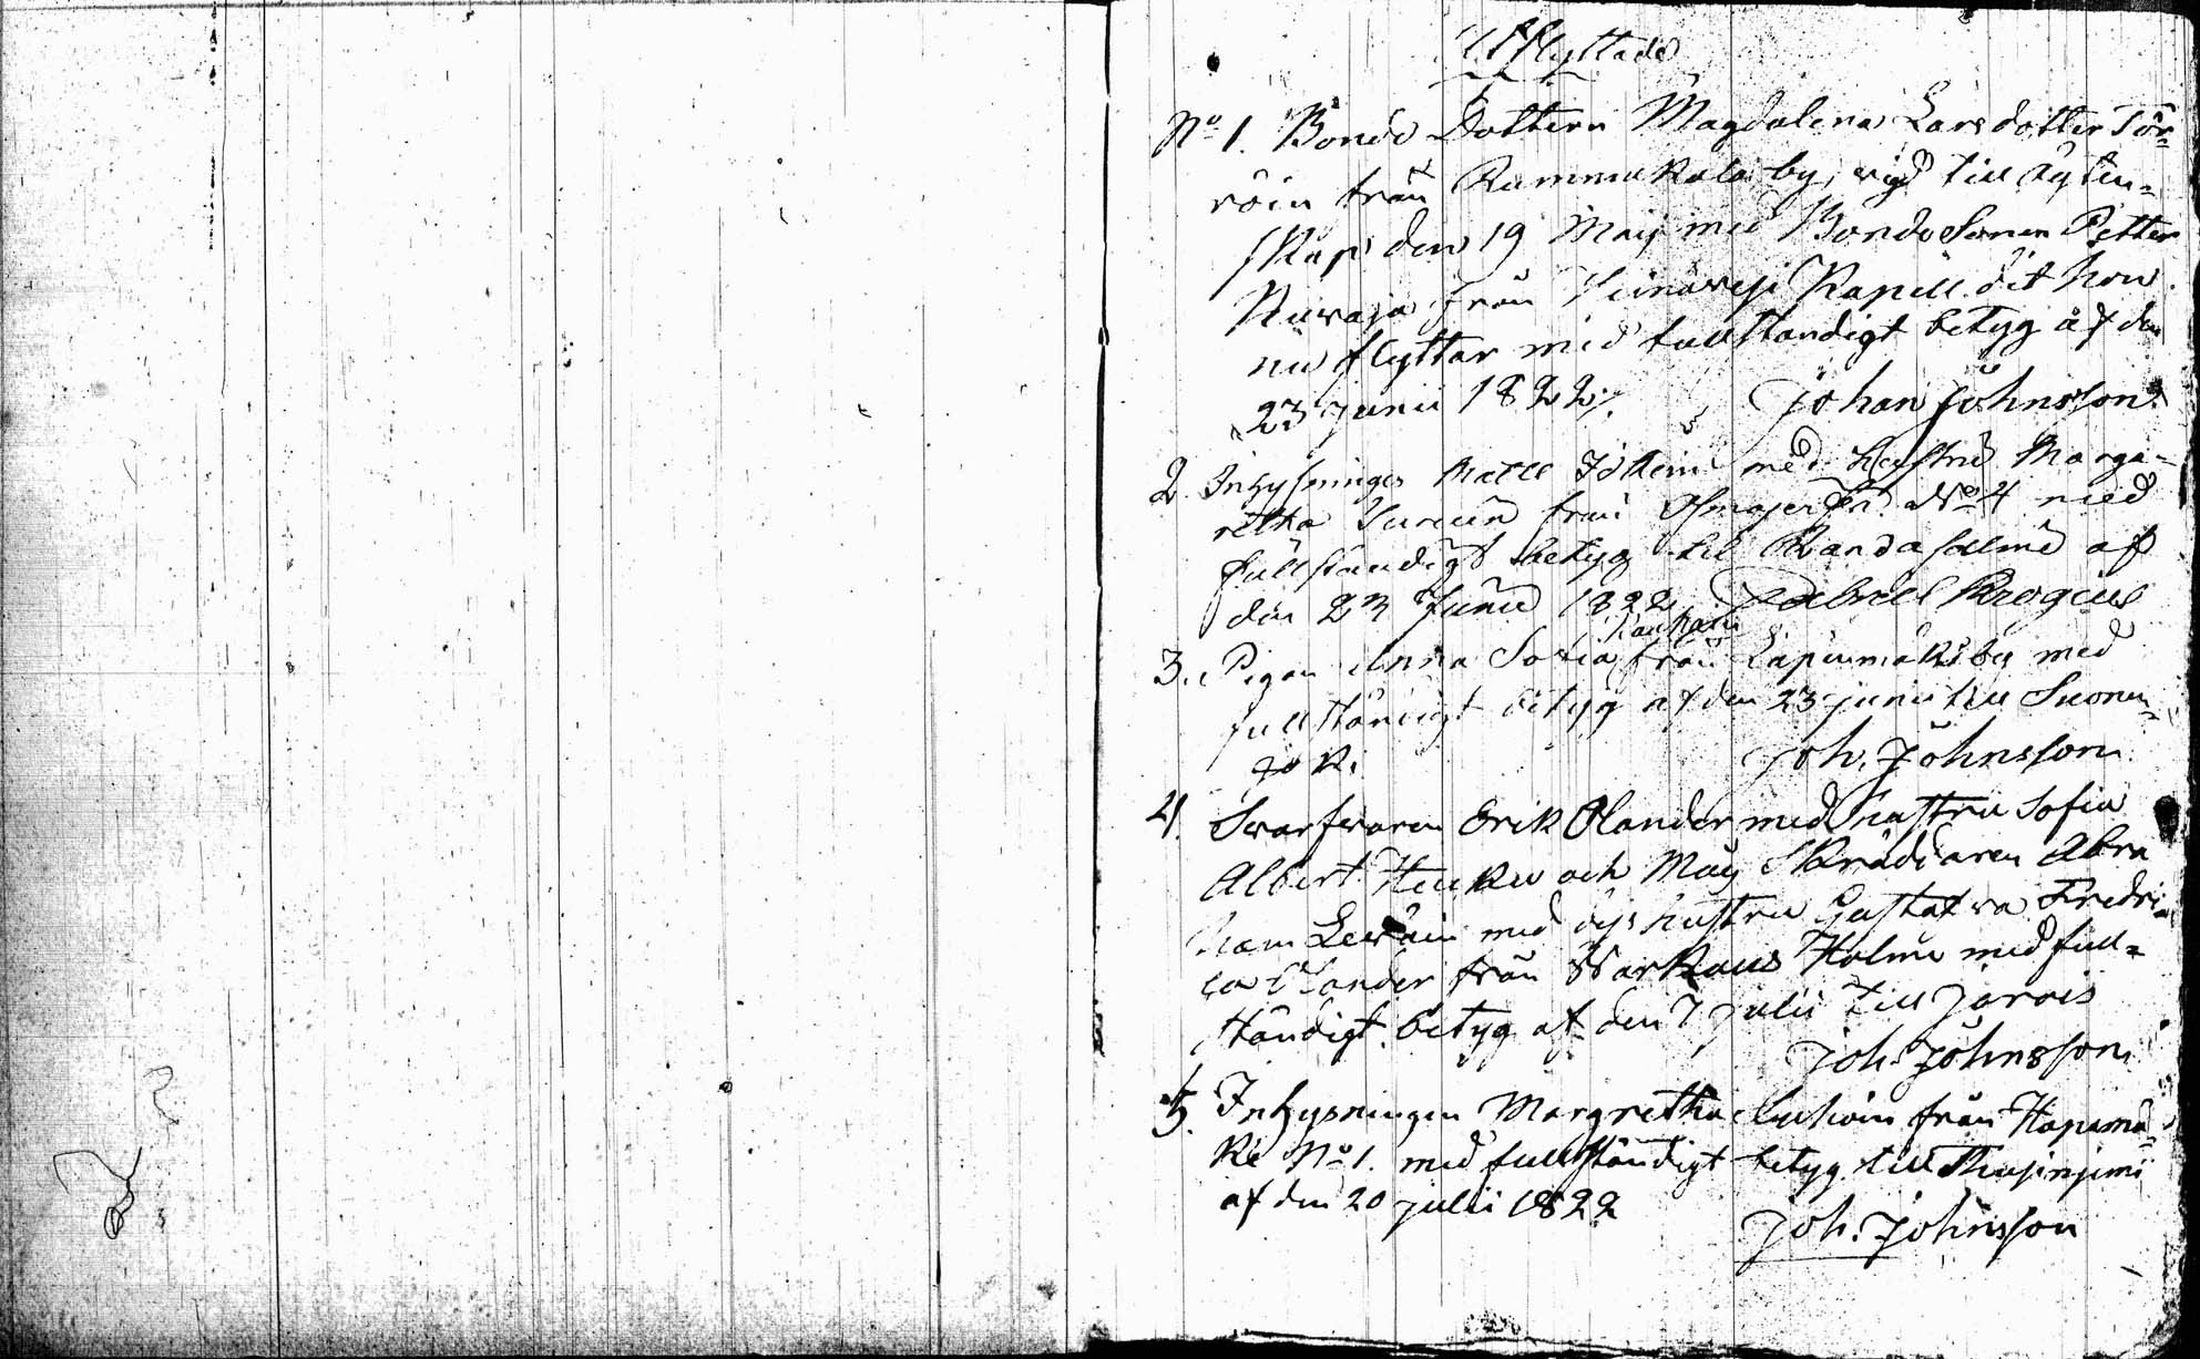 Utflyttade
No 1. Bonde Dottern Magdalena Larsdotter Tör=
röin från Rummukala by, vigd till Äkten=
skap den 19 Maij med BondeSonen Petter
från Kapell dit hon
nu flyttar med fullständigt betyg af den
23 junii 1822 Johan Johnsson
2. Inhysninges Matts med Hustru Marga=
retha från No 4 med
fullständigt betyg till Randasalmi af
den 23 Junii 1822 Gabriel Krogius
3. Pigan Anna Sofia från Lapinmäki by med
fullständigt betyg af den 23 junii till Suonen=
joki. Joh. Johnsson
4. Swarfvaren Erik Olander med Hustru Sofia
Albert. och Måg Skräddaren Abra
ham med dess hustru Gustafva Fredri
ca Olander från Warkaus Holme med full=
ständigt betyg af den 7 julii till Jorois
Joh. Johnsson
5. Inhysningen Margretha från Hapamä
ki No 1. med fullständigt betyg till
af den 20 julii 1822
Joh. Johnsson